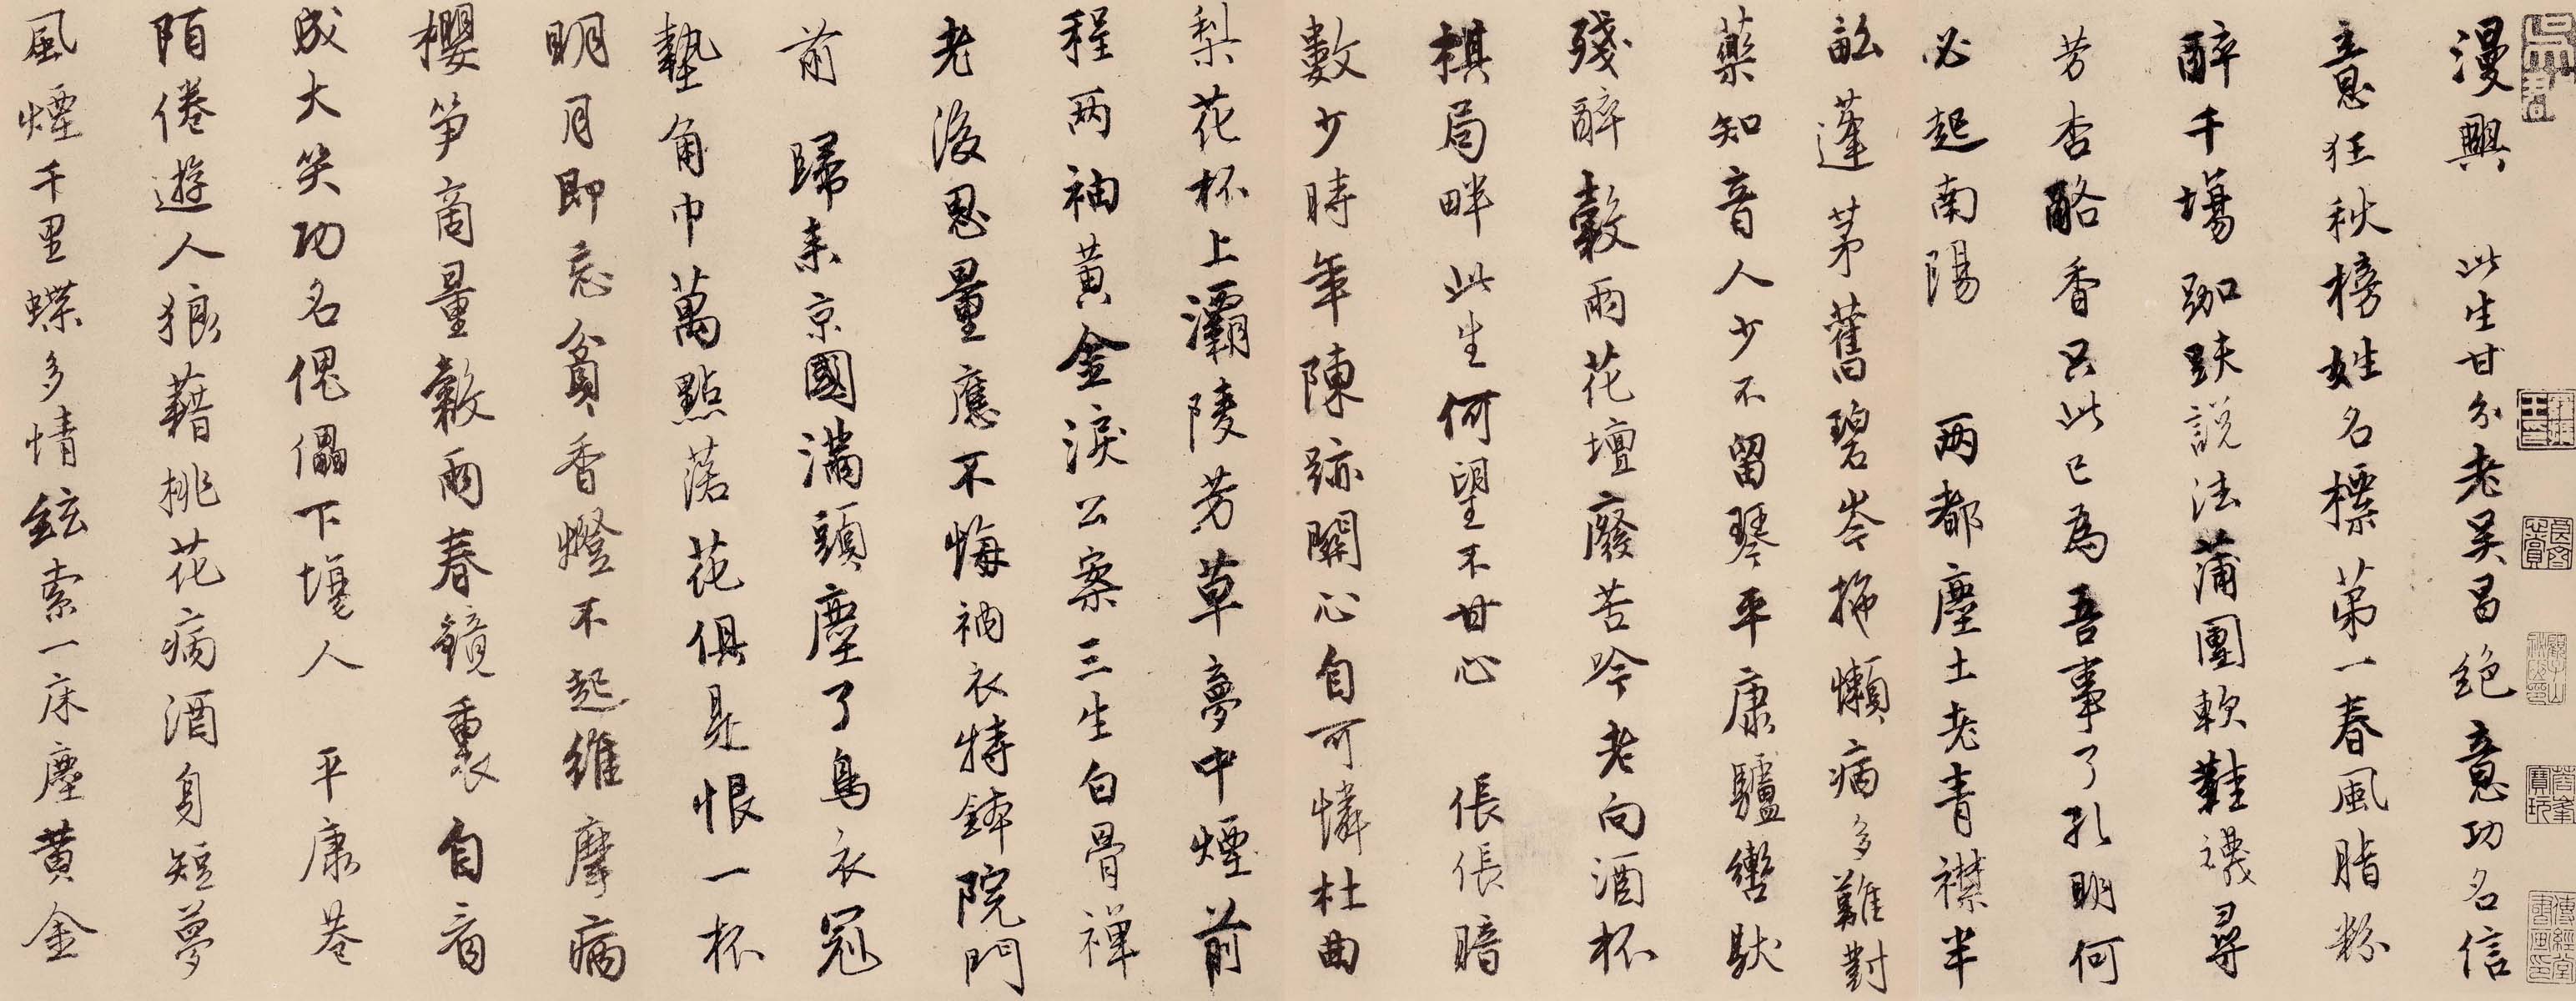 漫興 此生甘分老吴昌絶意功名信
意狂秋榜姓名標第一春風脂粉
醉千場跏趺説法蒲團軟鞋襪尋
芳杏酪香只此已為吾事了孔明何
必起南陽 两都塵土老青襟半
畝蓬茅舊碧岑拖懶病多難對
藥知音人少不留琴平康驢轡馱
殘醉穀雨花壇廢苦吟老向酒杯
棋局畔此生何望不甘心 倀倀暗
數少時年陳跡關心自可憐杜曲
梨花杯上灞陵芳草夢中煙前
程两袖黄金淚公案三生白骨禪
老後思量應不悔衲衣持鉢院門
前 歸来京國满頭塵了鳥衣冠
墊角巾萬點落花俱是恨一杯
明月即忘貧香燈不起維摩病
櫻笋商量穀雨春鏡裏自看
成大笑功名傀儡下場人 平康巷
陌倦遊人狼藉桃花病酒身短夢
風煙千里蝶多情鉉索一床塵黄金